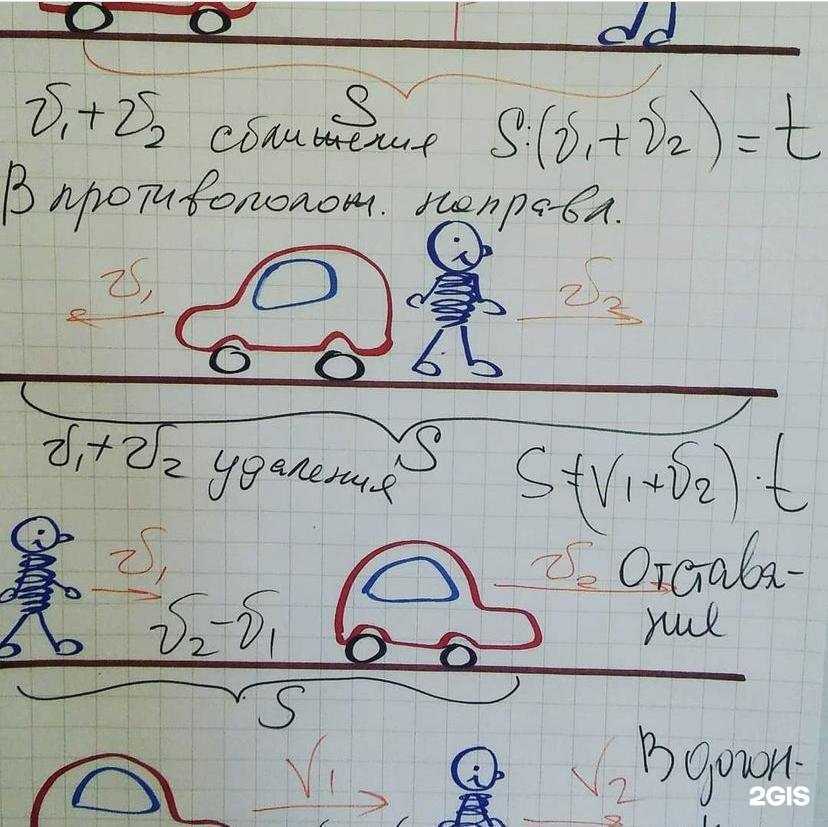 S
v₁+v₂ сближения S:(v₁+v₂)=t
В противополож. направл.
v₁ v₂
v₁+v₂ удаления S S=(v₁+v₂)·t
v₁ v₂ Отстава-
v₂-v₁ ние
S
V₁ V₂ В догон-
2GIS